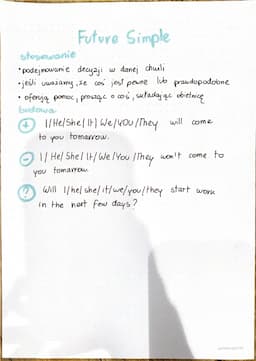 Future Simple
stosowanie
• podejmowanie decyzji w danej chwili
• jeśli uważamy, że coś jest pewne lub prawdopodobne
• oferują pomoc, prosząc o coś, składając obietnicę
budowa
+ I/He/She/It/We/YOU/They will come
to you tomorrow.
- I/He/She/It/We/You/They won't come to
you tomorrow.
? Will I/he/she/it/we/you/they start work
in the next few days?